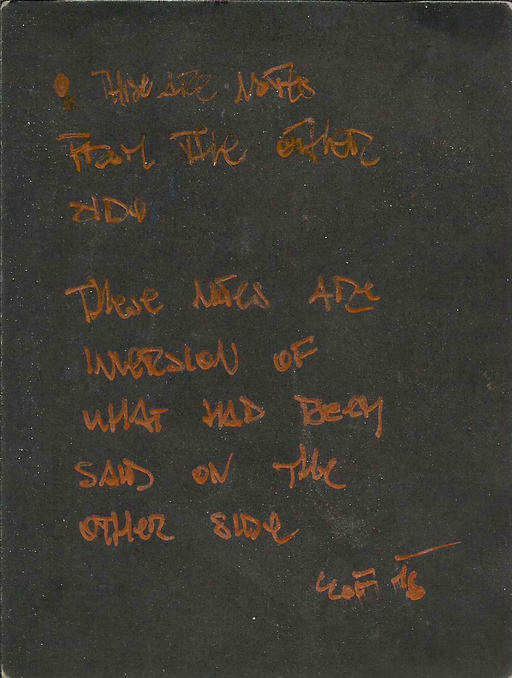 • These are notes
From the other
side
These notes are
inversion of
what had been
said on the
other side